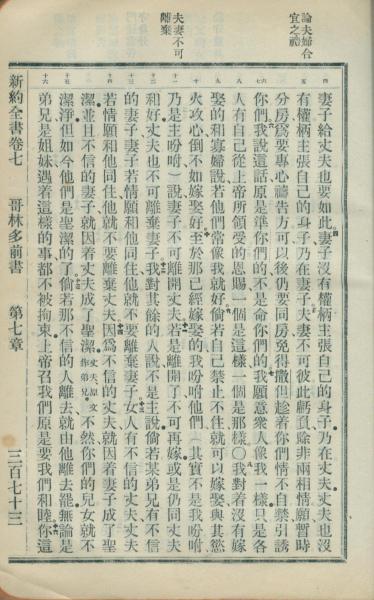 論夫婦合
宜之禮
夫妻不可
離棄
四
五
六七
八
九
十
十一
十二
十三
十四
十五
十六
妻子給丈夫也要如此妻子沒有權柄主張自己的身子乃在丈夫丈夫也沒
有權柄主張自己的身子乃在妻子夫妻不可彼此虧負除非兩相情願暫時
分房爲要專心禱告方可以後仍要同房免得撒但趁着你們情不自禁引誘
你們我說這話原是準你們的不是命你們的我願意衆人像我一樣只是各
人有自己從上帝所領受的恩賜一個是這樣一個是那樣○我對着沒有嫁
娶的和寡婦說若他們常像我就好倘若自己禁止不住就可以嫁娶與其慾
火攻心倒不如嫁娶好至於那已經嫁娶的我吩咐他們（其實不是我吩咐
乃是主吩咐）說妻子不可離開丈夫若是離開了不可再嫁或是仍同丈夫
和好丈夫也不可離棄妻子我對其餘的人說不是主說倘若某弟兄有不信
的妻子妻子若情願和他同住他就不要離棄妻子女人有不信的丈夫丈夫
若情願和他同住他就不要離棄丈夫因爲不信的丈夫就因着妻子成了聖
潔並且不信的妻子就因着丈夫成了聖潔丈夫原文作弟兄不然你們的兒女就不
潔淨但如今他們是聖潔的了倘若那不信的人離去就由他離去罷無論是
弟兄是姐妹遇着這樣的事都不被拘束上帝召我們原是要我們和睦你這
新約全書卷七 哥林多前書 第七章 三百七十三